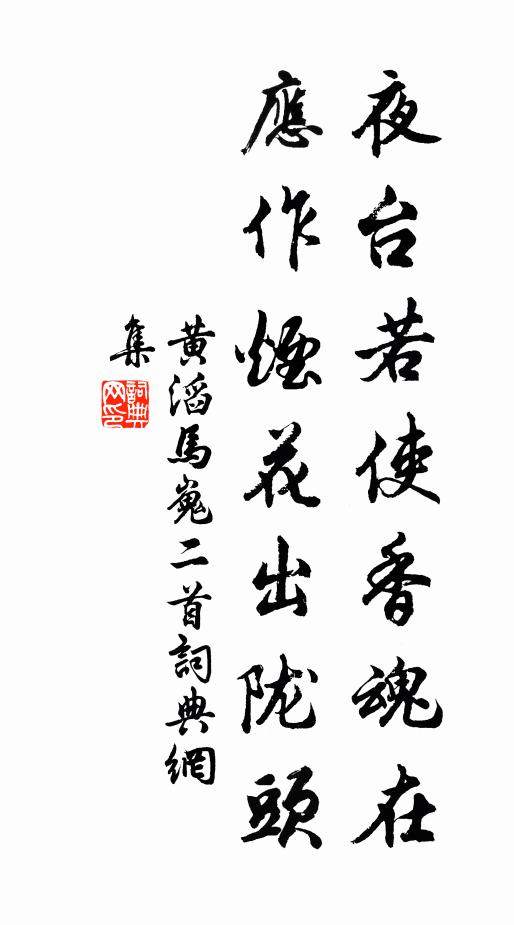 夜台若使香魂在
應作煙花出陇頭
黄滔馬嵬二首詞典網
集
詞典
网印